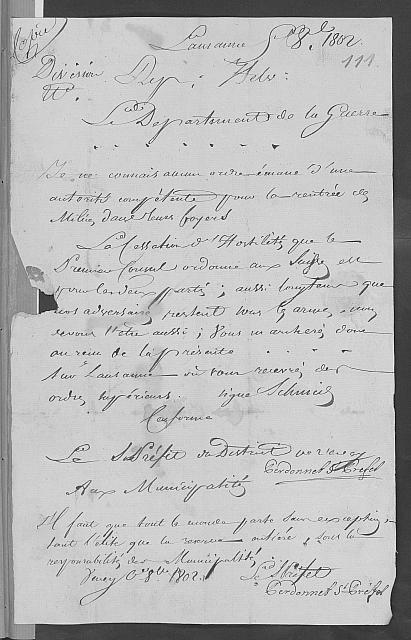 Copie
Lausanne 8bre 1802.
111
Division Rep: Helv:
Le Département de la Guerre
Je ne connais aucun ordre émané d'une
autorité compétente pour la rentrée des
Milices dans leurs foyers
La Cessation d'Hostilités que le
Premier Consul ordonne aux Suisses est
pour les deux partis; aussi longtems que
nos adversaires restent sous les armes, nous
devons l'être aussi; Vous marcherés donc
au reçu de la présente
sur Lausanne où vous recevrés des
ordres supérieurs. signé Schmid
Conforme
Le S. Préfet du District de Vevey
Perdonnet S. Préfet
Aux Municipalités
Il faut que tout le monde parte sans exception
tant l'élite que la reserve entière, sous la
responsabilité des Municipalités
Vevey 8bre 1802. Le S. Préfet
Perdonnet St Préfet